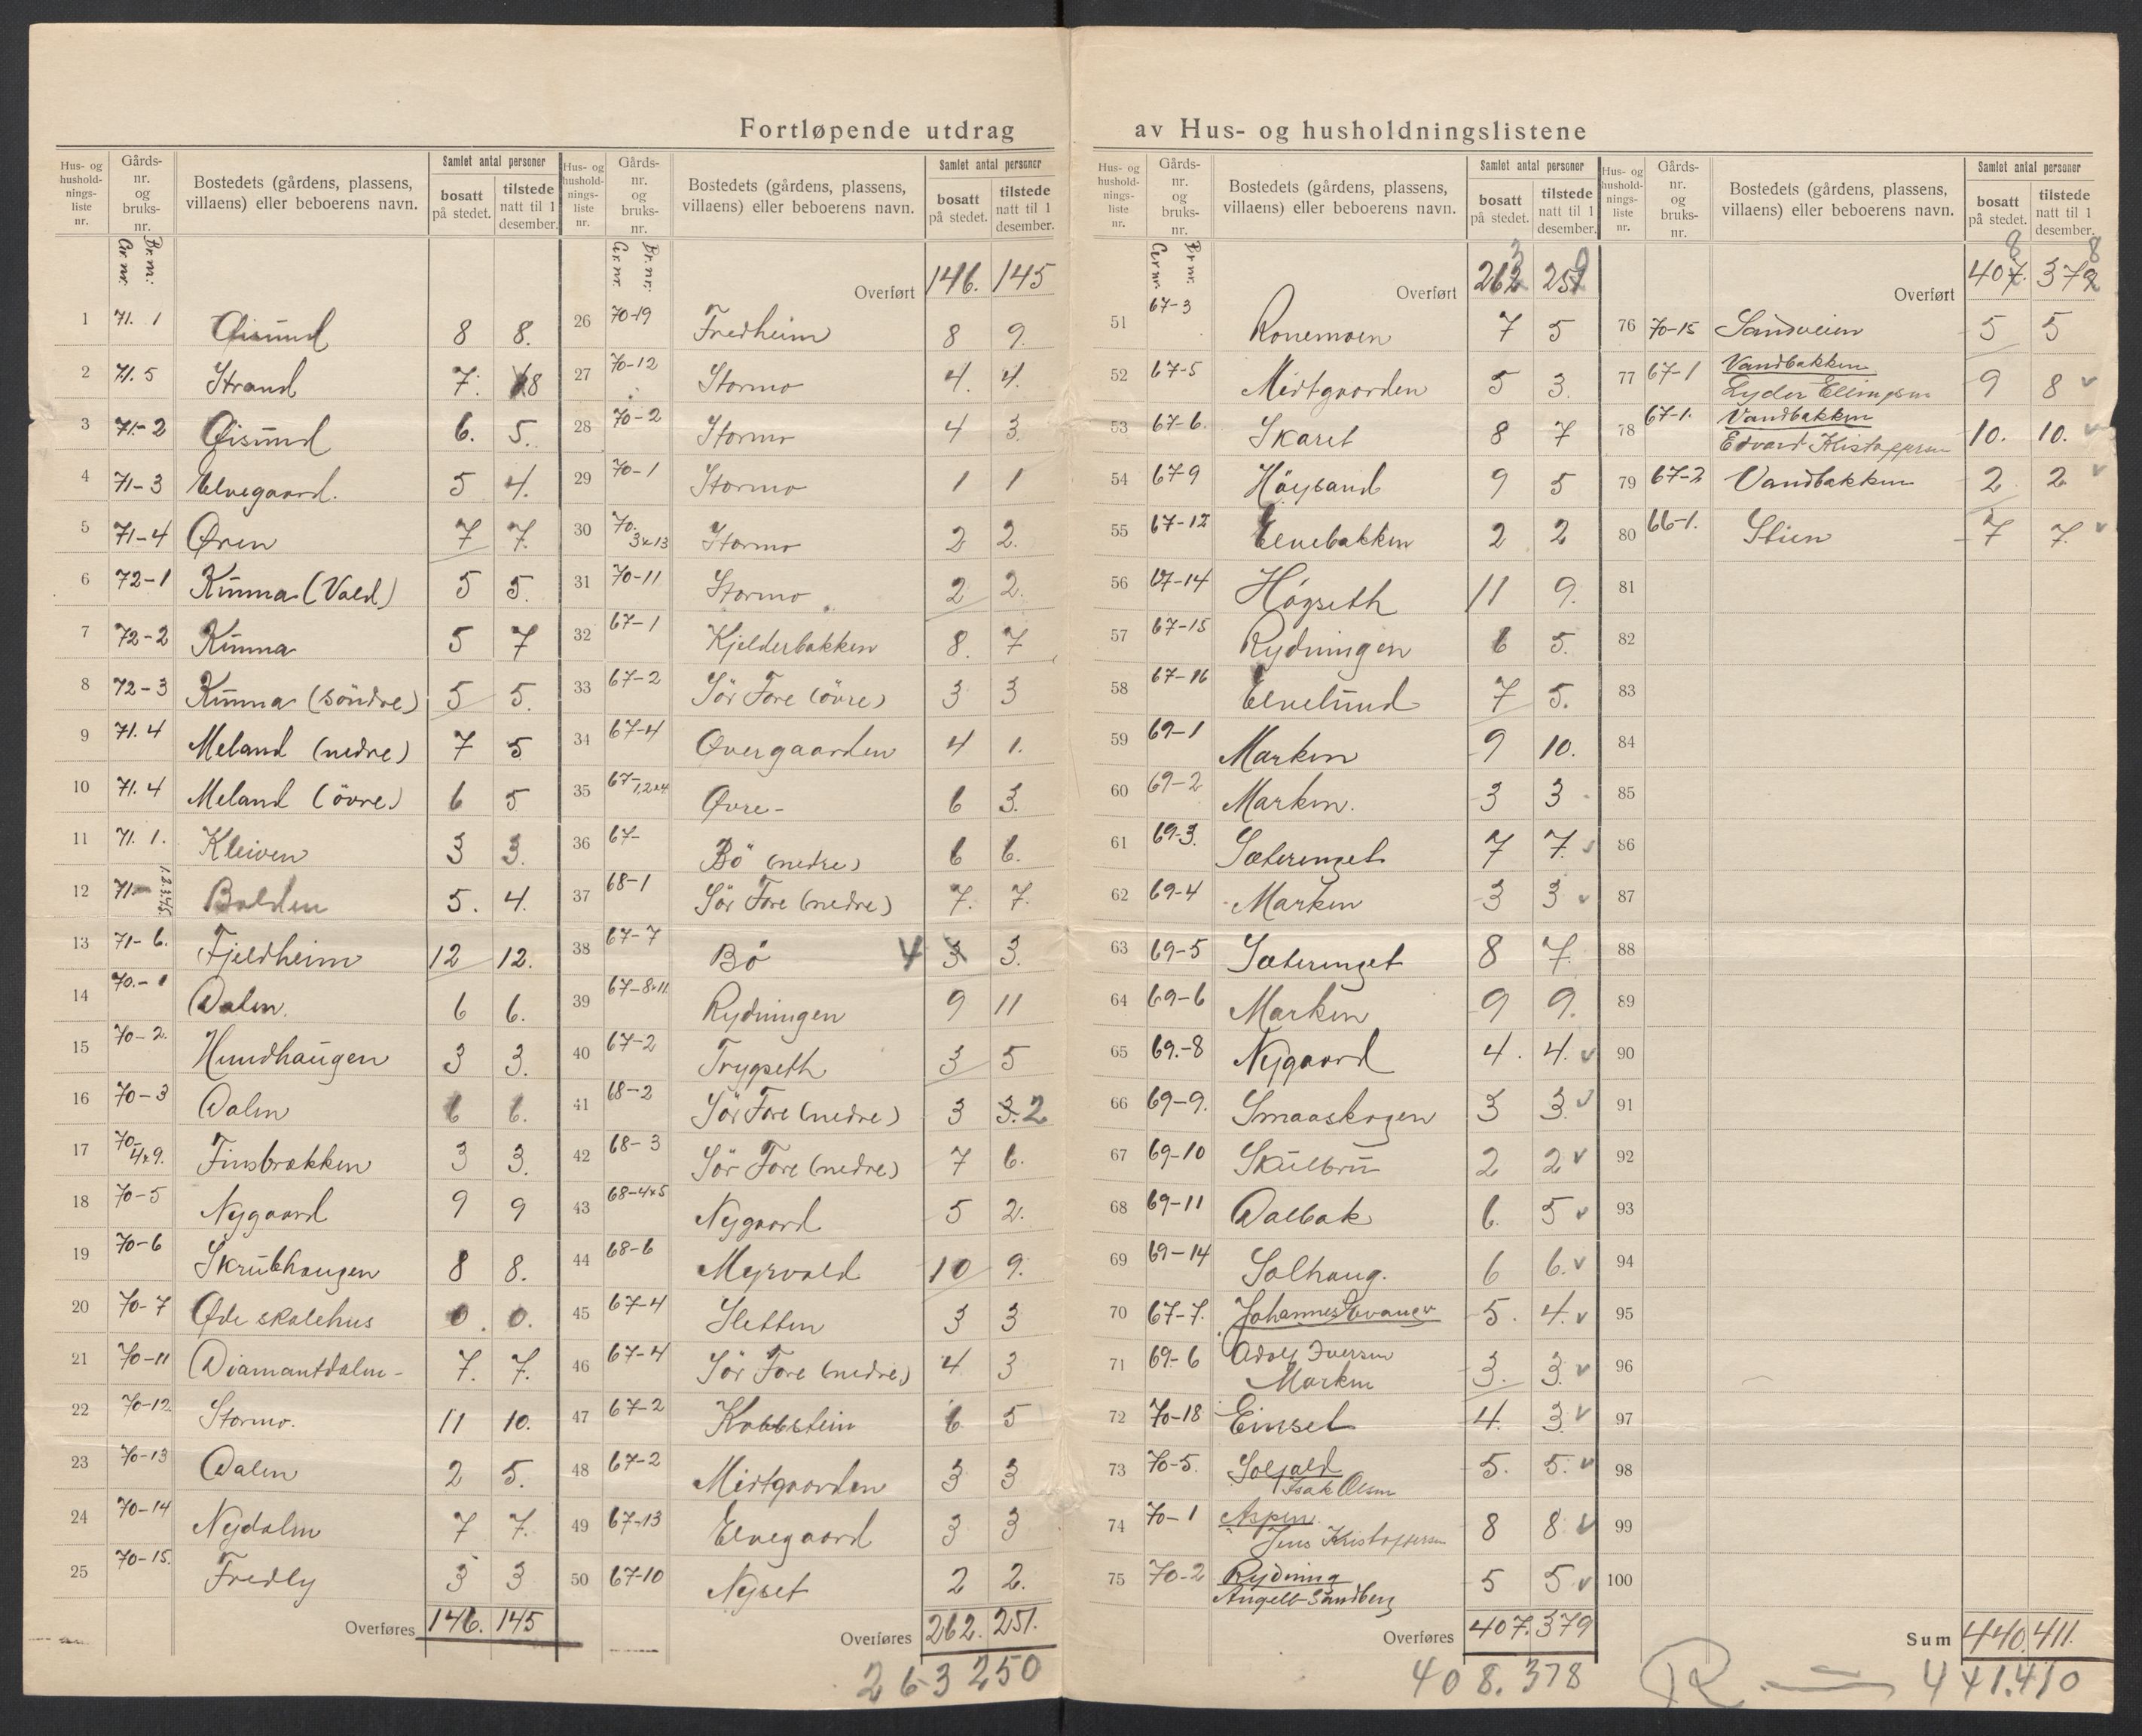 Fortløpende utdrag av Hus- og husholdningslistene
Hus- og husholdnings- liste nr. | Gårds- nr. og bruks- nr. | Bostedets (gårdens, plassens, villaens) eller beboerens navn. | Samlet antal personer | bosatt på stedet. | tilstede natt til 1 desember.
Gr nr. Br. nr.
1 71. 1 Øisund 8 8.
2 71. 5 Strand 7. 8
3 71-2 Øisund 6. 5.
4 71-3 Elvegaard. 5 4.
5 71-4 Øren 7 7.
6 72-1 Kunna (Vold) 5 5.
7 72-2 Kunna 5 7
8 72-3 Kunna (söndre) 5 5.
9 71. 4 Meland (nedre) 7 5
10 71. 4 Meland (övre) 6 5
11 71. 1. Kleiven 3 3.
12 71- 1.2.3.4.5. Bolden 5. 4.
13 71-6. Fjeldheim 12 12.
14 70.-1 Dalen. 6 6.
15 70-2. Hundhaugen 3 3.
16 70-3 Dalen 6 6.
17 70-4x9. Finsbrækken 3 3.
18 70-5 Nygaard 9 9
19 70-6 Skrubhaugen 8 8.
20 70-7 Øde skolehus 0. 0.
21 70-11 Diamantdalen- 7. 7.
22 70-12 Stormo. 11 10.
23 70-13 Dalen 2 5.
24 70-14 Nydalen 7 7.
25 70-15. Fredly 3 3
Overføres 146. 145
Hus- og husholdnings- liste nr. | Gårds- nr. og bruks- nr. | Bostedets (gårdens, plassens, villaens) eller beboerens navn. | Samlet antal personer | bosatt på stedet. | tilstede natt til 1 desember.
Gr nr. Br. nr.
Overført 146. 145
26 70-19 Fredheim 8 9.
27 70-12 Stormo 4. 4.
28 70-2 Stormo 4 3.
29 70-1 Stormo 1 1
30 70. 3x13 Stormo 2 2.
31 70-11 Stormo 2 2.
32 67-1 Kjelderbakken 8. 7
33 67-2 Sör Fore (övre) 3 3
34 67-4 Øvergaarden 4 1.
35 67-1,2x4 Øvre- 6 3.
36 67- Bö (nedre) 6 6.
37 68-1 Sör Fore (nedre) 7. 7.
38 67-7 Bö 4 3 3.
39 67-8x11 Rydningen 9 11
40 67-2 Trygseth 3 5
41 68-2 Sör Fore (nedre) 3 3. 2
42 68-3 Sör Fore (nedre) 7 6.
43 68-4x5 Nygaard 5 2.
44 68-6 Myrvold 10 9.
45 67-4 Sletten 3 3
46 67-4 Sör Fore (nedre) 4 3
47 67-2 Kobbstein 6 5
48 67-2 Midtgaarden 3 3
49 67-13 Elvegaard 3 3
50 67-10 Nyset 2 2.
Overføres 262. 251.
263 250
Hus- og husholdnings- liste nr. | Gårds- nr. og bruks- nr. | Bostedets (gårdens, plassens, villaens) eller beboerens navn. | Samlet antal personer | bosatt på stedet. | tilstede natt til 1 desember.
Gr nr. Br nr.
3 0
Overført 262 251
51 67-3 Ronemoen 7 5
52 67-5 Midtgaarden 5 3.
53 67-6. Skaret 8 7
54 67-9 Höysand 9 5
55 67-12 Elvebakken 2 2
56 67-14 Högseth 11 9.
57 67-15 Rydningen 6 5.
58 67-16 Elvelund 7 5.
59 69-1 Marken 9 10.
60 69-2 Marken. 3 3
61 69-3. Sæterenget 7 7.
62 69-4 Marken 3 3
63 69-5 Sæterenget 8 7.
64 69-6 Marken 9 9.
65 69.-8 Nygaard 4. 4.
66 69-9. Smaaskogen 3 3.
67 69-10 Skulbru 2 2
68 69-11 Dalbak 6. 5
69 69-14 Solhaug. 6 6.
70 67-7. Johannes 5. 4.
71 69-6 Adolf Iversen
Marken 3. 3.
72 70-18 Einset 4. 3
73 70-5. Isak Olsen 5. 5.
74 70-1 Aspen.
Jens Kristoffersen 8 8
75 70-2 Rydning
Angell Sandberg 5 5
Overføres 407. 379
408. 378
Hus- og husholdnings- liste nr. | Gårds- nr. og bruks- nr. | Bostedets (gårdens, plassens, villaens) eller beboerens navn. | Samlet antal personer | bosatt på stedet. | tilstede natt til 1 desember.
8 8
Overført 407. 379
76 70-15 Sandveien 5 5
77 67-1 Vandbakken
Lyder Ellingsen 9 8
78 67-1. Vandbakken
Edvard Kristoffersen 10. 10.
79 67-2 Vandbakken 2 2
80 66-1. Stien 7 7.
81
82
83
84
85
86
87
88
89
90
91
92
93
94
95
96
97
98
99
100
Sum 440. 411.
R 441. 410